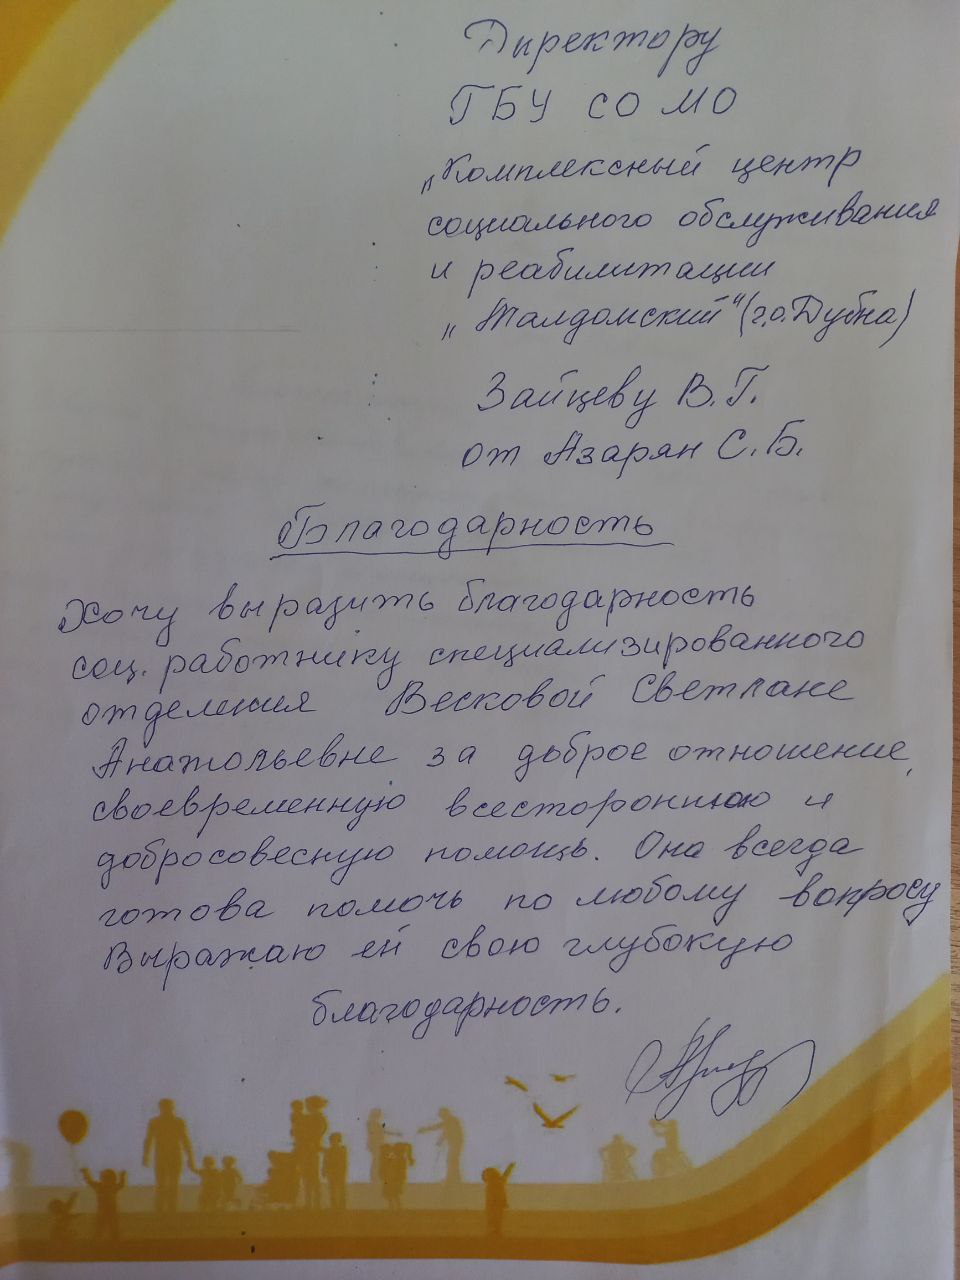 Директору
ГБУ СО МО
„Комплексный центр
социального обслуживания
и реабилитации
„Талдомский" (г.о. Дубна)
Зайцеву В.Г.
от Азарян С.Б.
Благодарность
Хочу выразить благодарность
соц. работнику специализированного
отделения Весковой Светлане
Анатольевне за доброе отношение,
своевременную всестороннюю и
добросовесную помощь. Она всегда
готова помочь по любому вопросу
Выражаю ей свою глубокую
благодарность.